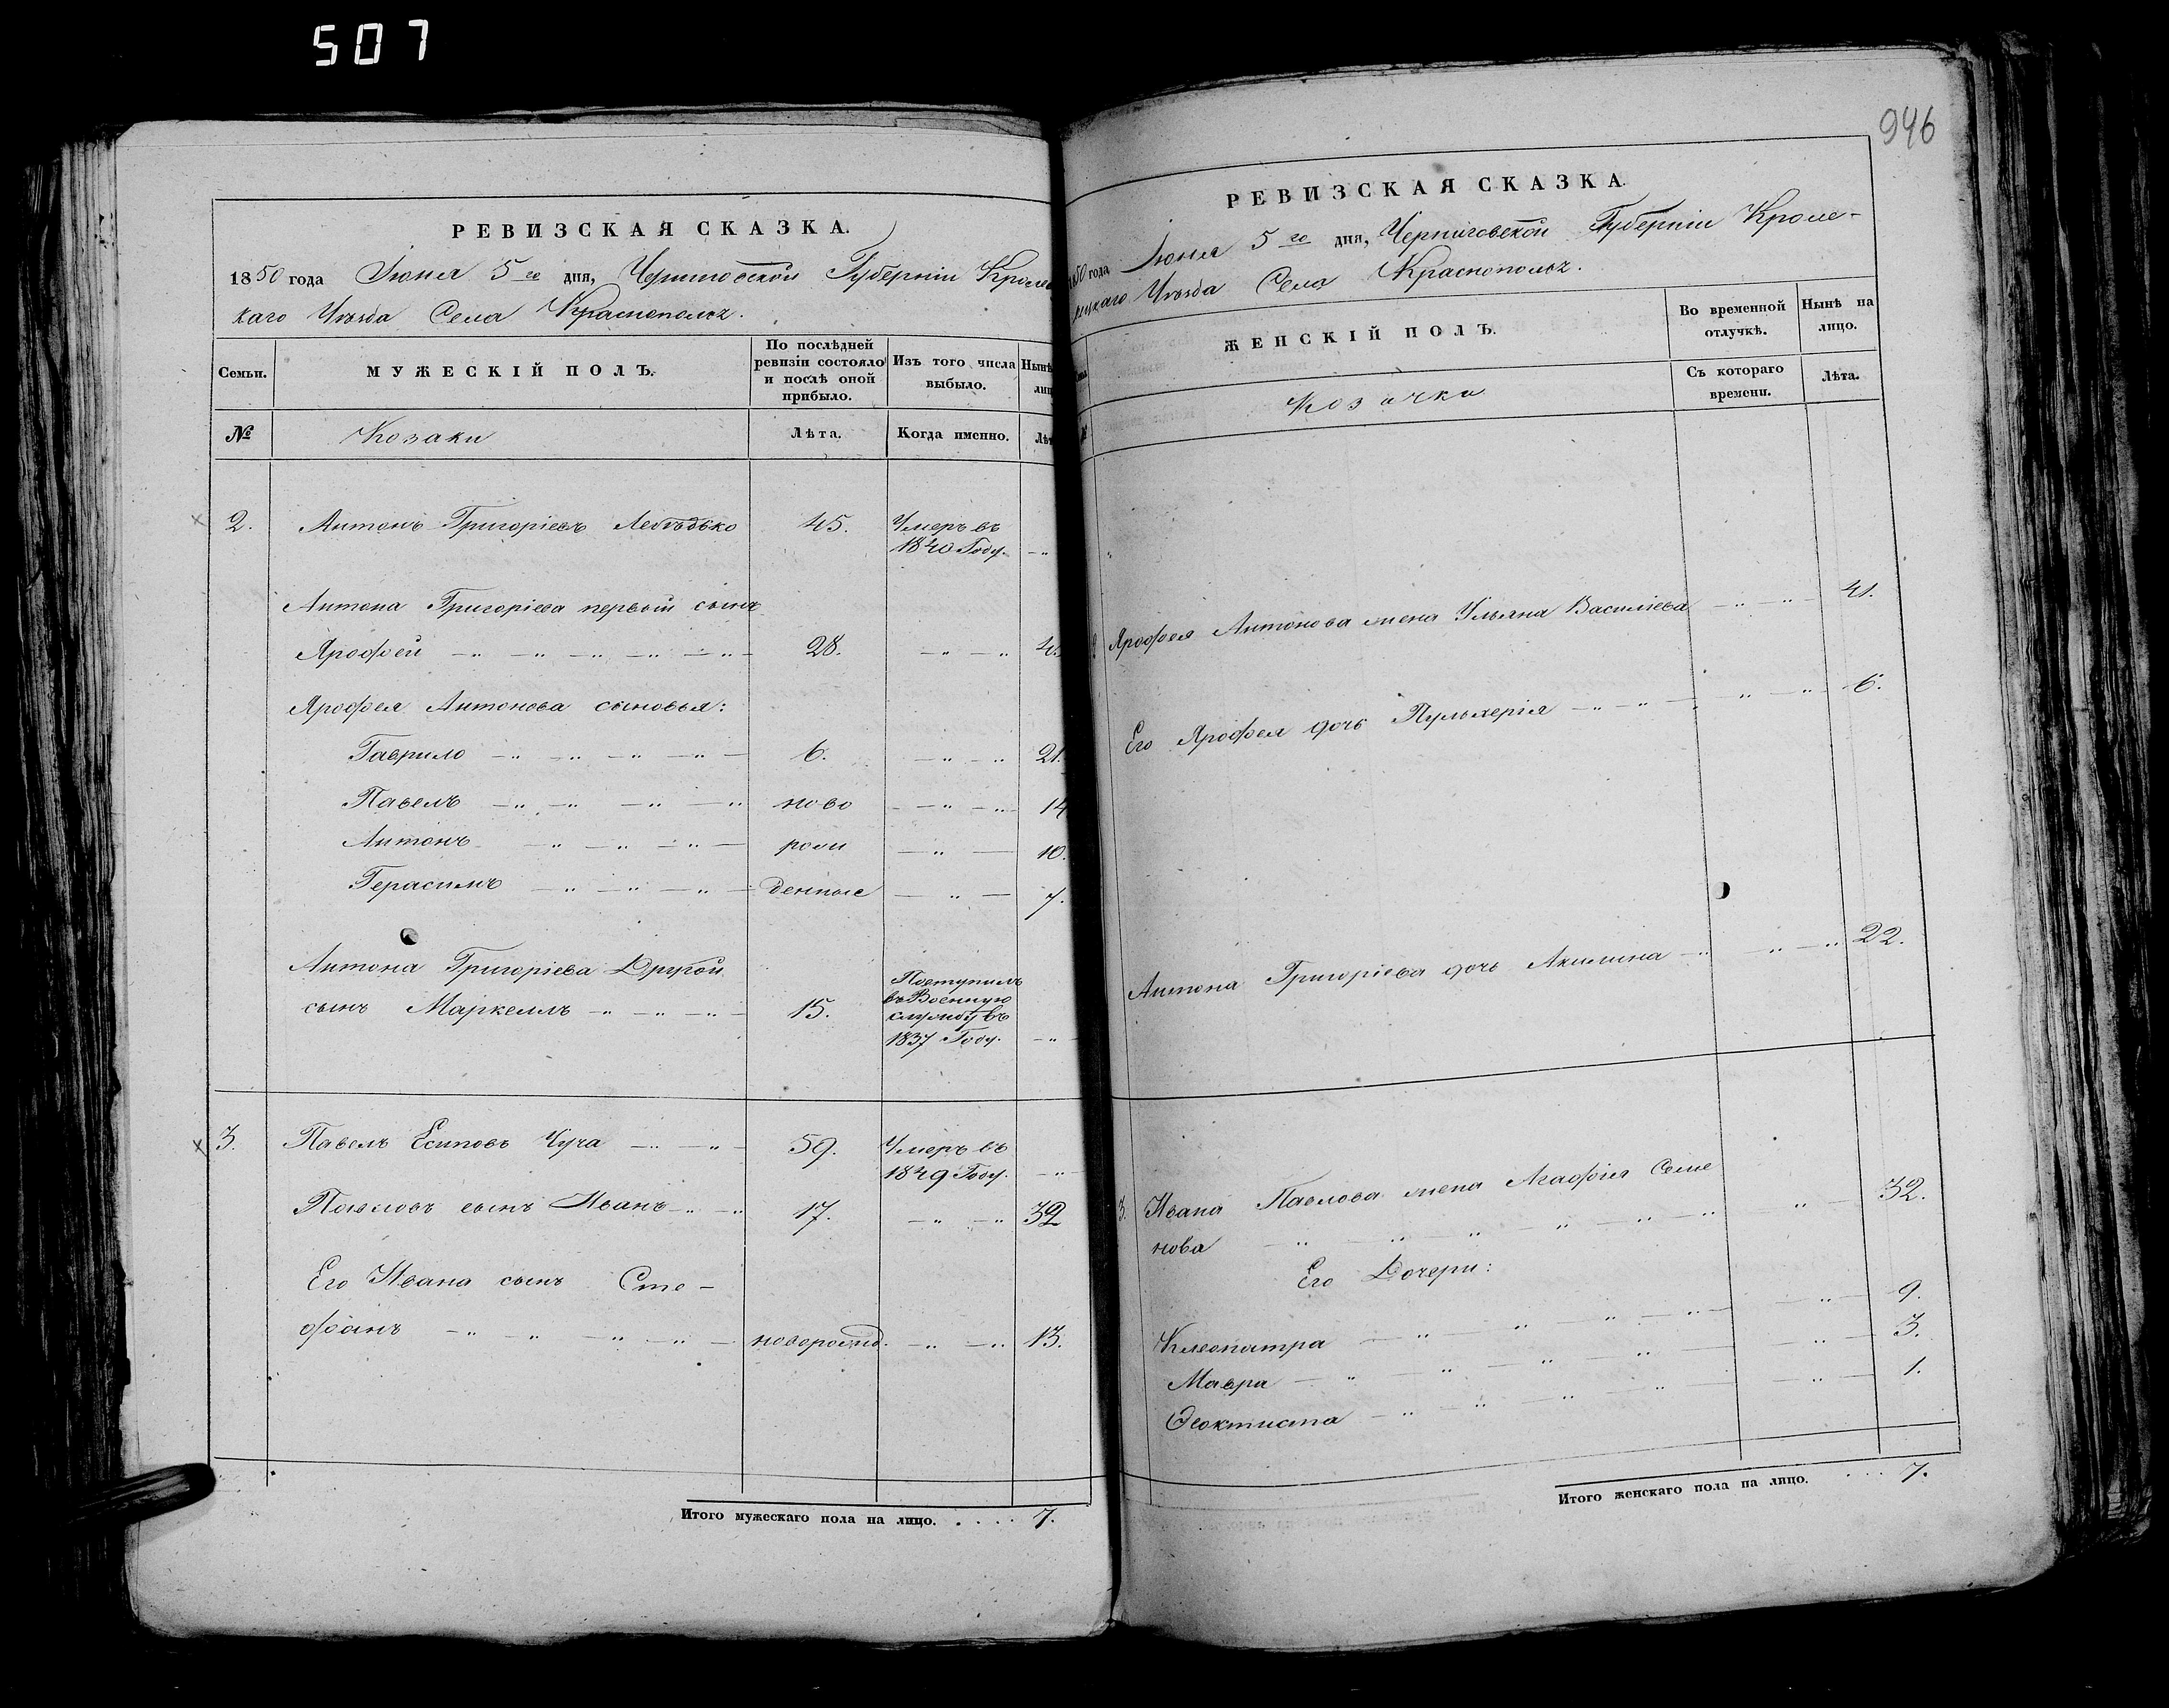 507
РЕВИЗСКАЯ СКАЗКА.
1850 года Іюня 5го дня, Черниговской Губерніи Кролев
каго Уѣзда Села Краснополья.
Семьи.
МУЖЕСКІЙ ПОЛЪ.
По послѣдней ревизіи состояло и послѣ оной прибыло.
Изъ того числа выбыло.
Нынѣ лиц
№
Козаки
Лѣта.
Когда именно.
Лѣт
2. Антонъ Григоріевъ Лебѣдько 45. Умеръ въ
1840 Году. — „
Антона Григоріева первый сынъ
Ярофей — „ — „ — „ — „ — „ — 28. — „ — „ 4
Ярофея Антонова сыновья:
Гаврило — „ — „ — „ — „ — 6. — „ — „ 21.
Павелъ — „ — „ — „ — „ ново — „ — „ — 14
Антонъ — „ — „ — „ — рож — „ — 10.
Герасимъ — „ — „ — „ — денные — „ — 7.
Антона Григоріева Другой
сынъ Маркеллъ — „ — „ — „ — 15. Поступилъ
въ Военную
службу въ
1837 Году. — „ —
3. Павелъ Есиповъ Чуча — „ — „ — 59. Умеръ въ
1849 Году. — „ —
Павловъ сынъ Иванъ — „ — „ 17. — „ — „ 32
Его Ивана сынъ Сте-
фанъ — „ „ — „ — „ — новорожд. — „ — „ 13.
Итого мужескаго пола на лицо. . . . . 7.
946
РЕВИЗСКАЯ СКАЗКА.
1850 года Іюня 5го дня, Черниговской Губерніи Кроле-
вецкаго Уѣзда Села Краснополья.
ЖЕНСКІЙ ПОЛЪ.
Во временной отлучкѣ.
Нынѣ на лицо.
Козачки
Съ котораго времени.
Лѣта.
Ярофея Антонова жена Ульяна Василіева — „ — „ — 41.
Его Ярофея дочь Пульхерія — „ — „ — „ — „ — 6.
Антона Григоріева дочь Акилина — „ — „ — „ 22.
3. Ивана Павлова жена Агафія Семе
нова — „ — „ — „ — „ — „ — „ „ — 32.
Его Дочери:
Клеопатра — „ — „ — „ — „ — „ — 9.
Мавра — „ — „ — „ — „ — „ — 3.
Ѳеоктиста — „ — „ — „ — „ — „ — 1.
Итого женскаго пола на лицо. . . . . 7.